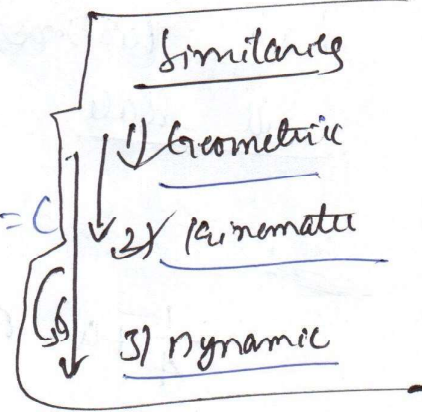 Similarities
1) Geometric
= C 2) Kinematic
3) Dynamic